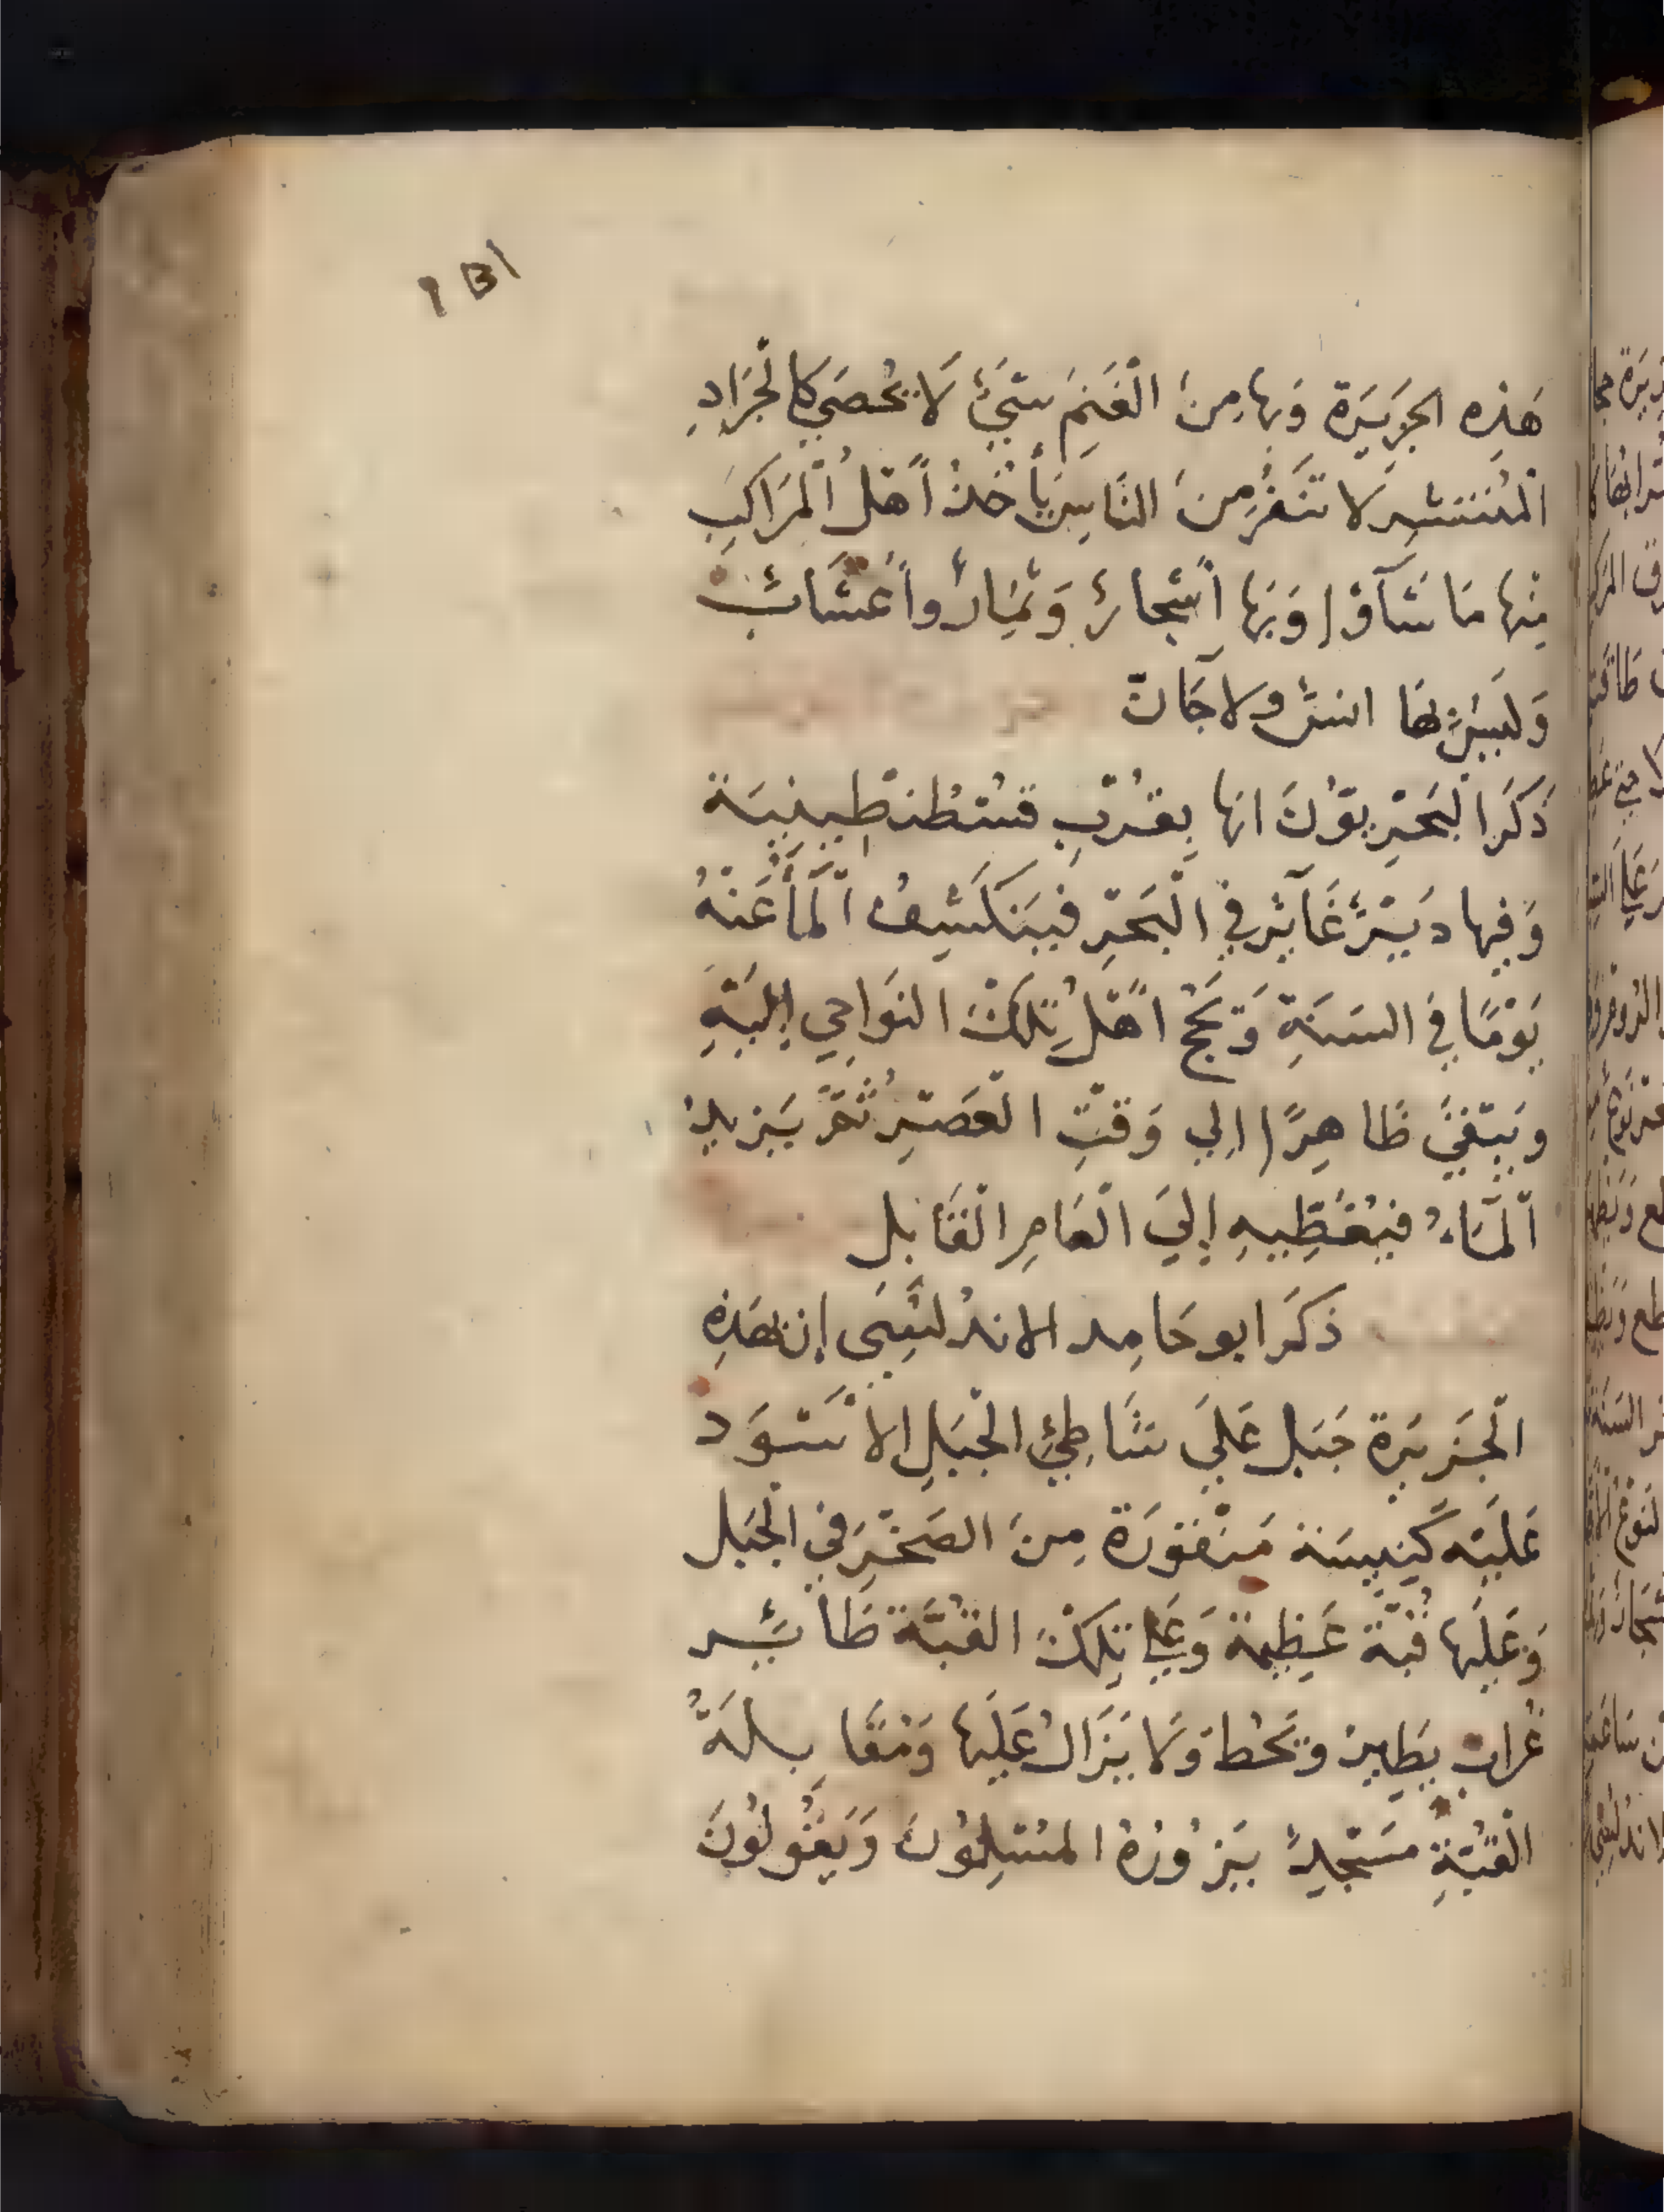 ١٥١
هَذِه الجَزِيَرة وَبها مِنَ الْغَنِمَ شَيٌ لَا يُحْصَي كالْجَرَادِ
الْمُنْتَشِر لَا تَنَفْرُ مِنَ النَاسِ يَأْخُذُ أَهْلُ الْمَرَاكِبَ
مِنْها مَا شَآؤا وَبَها أَشْجارٌ وَثِمَارٌ وأَعْشَابٌ
وَلَيسْ بهَا انسٌ ولا جَانّ
ذَكَرَ الْبَحْرِيوُنَ انها بِقُرْبِ قسْطُنْطِينيَة
وَفيها دَيْرٌ غَآيْرٌ في الْبَحْرِ فيَنكَشِفُ الْمَأَ عَنْهُ
يَوْمًا في السَنَةِ وَتَحُج أَهْلُ تِلكَ النَواحِي إِليْهِ
وَيَبْقَيَ ظَاهِرًا الِي وَقتِ الْعَصْرِ ثُمَّ يَزيدُ
الْمَآءُ فيُغَطِيهِ إِليَ الْعَامِ الْقَابِل
ذكَرَ ابو حَامِد الاندُلْسَِي إن بهَذِهِ
الْجَزيَرة جَبَل عَلَي شَاطِئِ الْجَبَلِ الأَسْوَد
عَليْه كَنِيسَة مَنْقوُرَة مِنَ الصَخْرَ في الْجَبَل
وَعَلَيها قُبَّة عَظِيمَة وَعَلي تِلكَ القُبَّة طَائِر
غُرابْ يطَيِر وَيَحُط وَلَا يَزَالُ عَلَيَها وَمُقَابِلَةُ
الْقُبَّةِ مَسْجِدٌ يَزوُرُهُ المسْلِموُنَ وَيَقُولُونَ